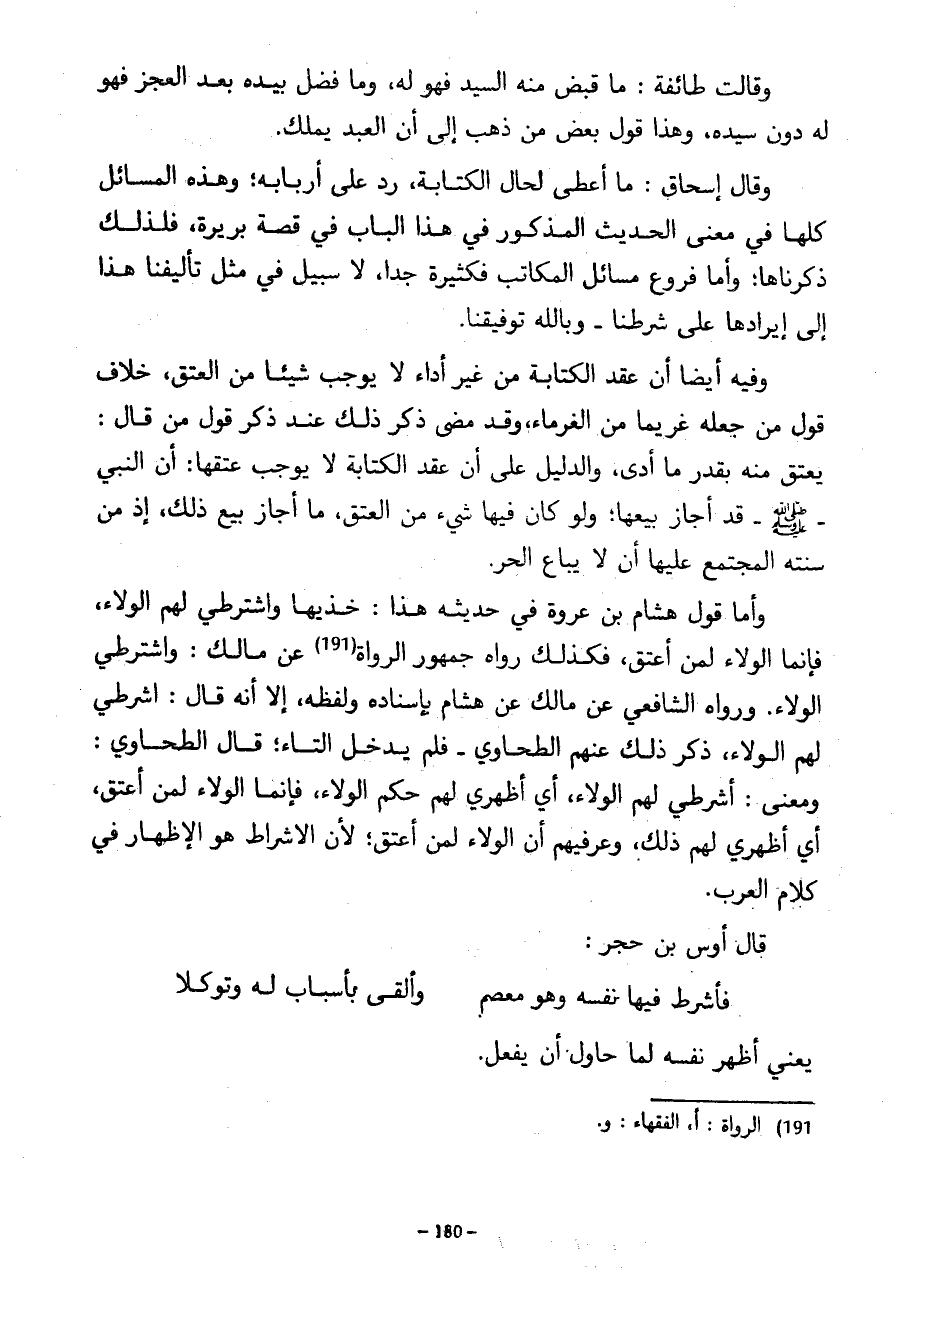 وقالت طائفة : ما قبض منه السيد فهو له، وما فضل بيده بعد العجز فهو
له دون سيده، وهذا قول بعض من ذهب إلى أن العبد يملك.
وقال إسحاق : ما أعطى لحال الكتابة، رد على أربابه؛ وهذه المسائل
كلها في معنى الحديث المذكور في هذا الباب في قصة بريرة، فلذلك
ذكرناها: وأما فروع مسائل المكاتب فكثيرة جدا، لا سبيل في مثل تأليفنا هذا
إلى إيرادها على شرطنا ـ وبالله توفيقنا.
وفيه أيضا أن عقد الكتابة من غير أداء لا يوجب شيئا من العتق، خلاف
قول من جعله غريما من الغرماء،وقد مضى ذكر ذلك عند ذكر قول من قال :
يعتق منه بقدر ما أدى، والدليل على أن عقد الكتابة لا يوجب عتقها: أن النبي
ـ ﷺ ـ قد أجاز بيعها؛ ولو كان فيها شيء من العتق، ما أجاز بيع ذلك، إذ من
سنته المجتمع عليها أن لا يباع الحر.
وأما قول هشام بن عروة في حديثه هذا : خذيها واشترطي لهم الولاء،
فإنما الولاء لمن أعتق، فكذلك رواه جمهور الرواة(191) عن مالك : واشترطي
الولاء. ورواه الشافعي عن مالك عن هشام بإسناده ولفظه، إلا أنه قال : اشرطي
لهم الولاء، ذكر ذلك عنهم الطحاوي ـ فلم يدخل التاء؛ قال الطحاوي :
ومعنى : أشرطي لهم الولاء، أي أظهري لهم حكم الولاء، فإنما الولاء لمن أعتق،
أي أظهري لهم ذلك، وعرفيهم أن الولاء لمن أعتق؛ لأن الاشراط هو الإظهار في
كلام العرب.
قال أوس بن حجر :
فأشرط فيها نفسه وهو معصم وألقى بأسباب له وتوكلا
يعني أظهر نفسه لما حاول أن يفعل.
191) الرواة : أ، الفقهاء : و.
- 180 -